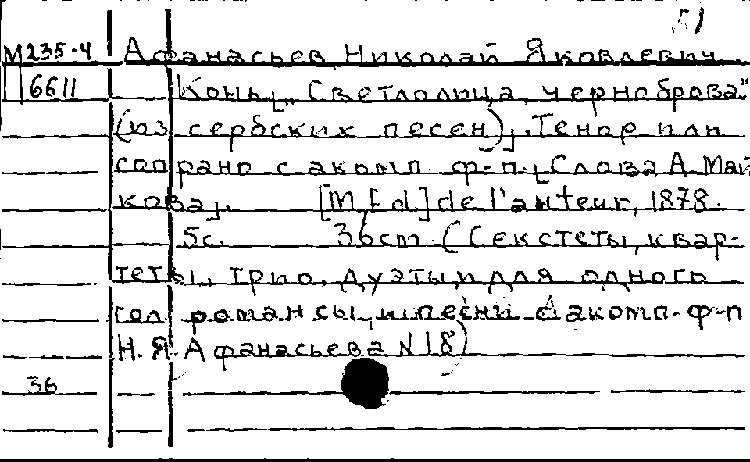 51
М235-4 Афанасьев, Николай Яковлевич.
6611 Конь [„Светлолица, черноброва“
(из сербских песен)]. Тенор или
сопрано с акомп. ф-п. [Слова А. Май
кова]. [М, Ed] de l'auteur, 1878.
5с. 36cm. (Секстеты, квар-
теты, трио, дуэты и для одного
гол. романсы и песни с акомп. ф-п
Н. Я. Афанасьева N 18)
36